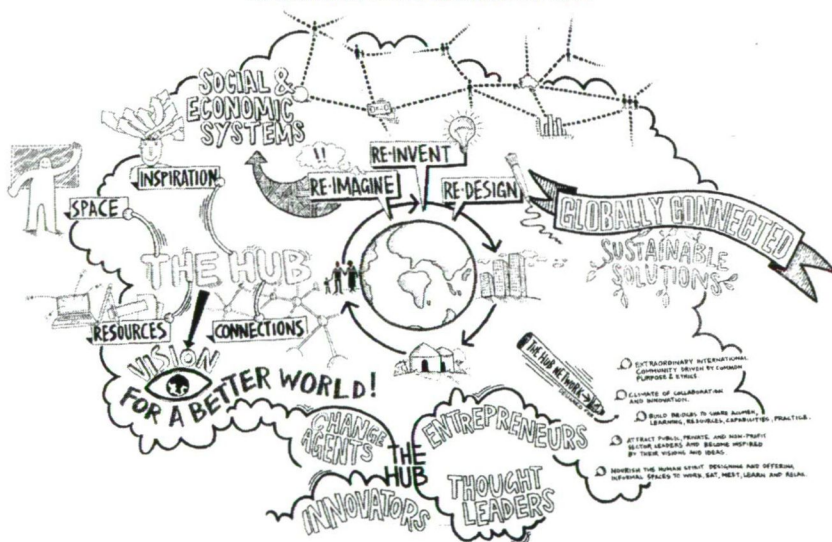 SOCIAL &
ECONOMIC
SYSTEMS
!!
RE-INVENT
RE-IMAGINE
RE-DESIGN
INSPIRATION
SPACE
GLOBALLY CONNECTED
SUSTAINABLE
SOLUTIONS
THE HUB
RESOURCES
CONNECTIONS
VISION
FOR A BETTER WORLD!
THE HUB NETWORK
EXTRAORDINARY INTERNATIONAL
COMMUNITY DRIVEN BY COMMON
PURPOSE & ETHICS
CLIMATE OF COLLABORATION
AND INNOVATION.
BUILD BRIDGES TO SHARE
LEARNING, RESOURCES, CAPABILITIES, PRACTICE.
ATTRACT PUBLIC, PRIVATE, AND NON-PROFIT
SECTOR LEADERS AND BECOME INSPIRED
BY THEIR VISIONS AND IDEAS.
NOURISH THE HUMAN SPIRIT DESIGNING AND OFFERING
INFORMAL SPACES TO WORK, EAT, MEET, LEARN AND RELAX.
CHANGE
AGENTS
ENTREPRENEURS
THE
HUB
INNOVATORS
THOUGHT
LEADERS